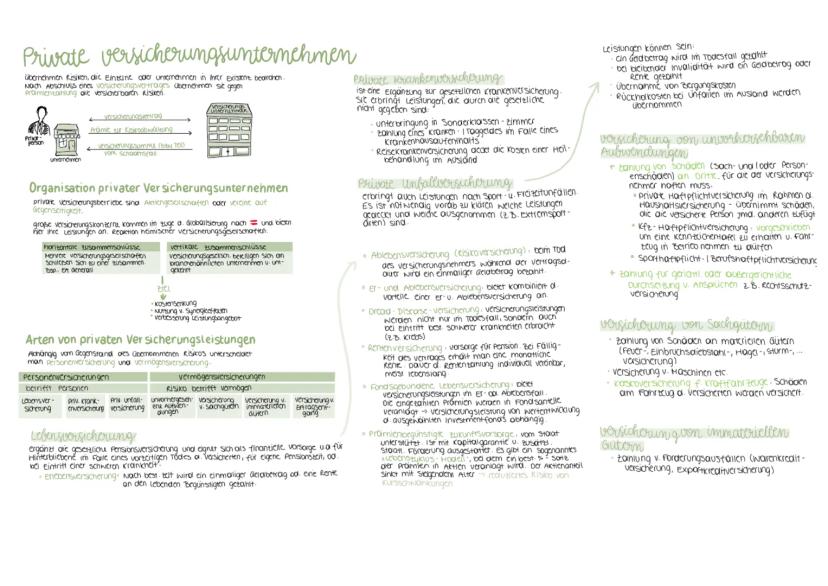 Private versicherungsunternehmen
übernehmen Risiken, die Einzelne oder unternehmen in ihrer Existenz bedrohen.
Nach Abschluss eines versicherungsvertrages übernehmen sie gegen
Prämienzahlung die versicherbaren Risiken.
versicherungsvertrag
Prämie zur Risikoabwälzung
versicherungssumme
vom Schadensfall
Privat-
person
unternehmen
versicherungs
unternehmen
Organisation privater Versicherungsunternehmen
private versicherungsbetriebe sind Aktiengesellschaften oder vereine auf
Gegenseitigkeit.
große versicherungskonzerne kommen im zuge d. Globalisierung nach und bieten
hier ihre Leistungen an. Reaktion heimischer versicherungsgesellschaften:
horizontale zusammenschlüsse
Mehrere versicherungsgesellschaften
schließen sich zu einer zusammen.
Bsp. EA Generali
vertikale zusammenschlüsse
versicherungsgesellsch. beteiligen sich an
branchenähnlichen unternehmen u. um-
gekehrt
ZIEL
• Kostensenkung
• Nutzung v. Synergieeffekten
• verbesserung Leistungsangebot
Arten von privaten Versicherungsleistungen
Abhängig vom Gegenstand des übernommenen Risikos unterscheidet
man Personenversicherung und vermögensversicherung.
Personenversicherungen
vermögensversicherungen
betrifft Personen
Risiko betrifft vermögen
Lebensver-
sicherung
priv. krank-
enversicherung
priv. unfall-
versicherung
unvorhergeseh-
ene Aufwen-
dungen
versicherung
v. Sachgütern
versicherung v.
immateriellen
Gütern
versicherung v.
Ertragsent-
gang
Lebensversicherung
ergänzt die gesetzliche Pensionsversicherung und eignet sich als finanzielle vorsorge u.a für
Hinterbliebene im Falle eines vorzeitigen Todes d. versicherten, für eigene Pensionszeit, od.
bei Eintritt einer schweren Krankheit.
• Erlebensversicherung: Nach best. Zeit wird ein einmaliger Geldbetrag od. eine Rente
an den lebenden Begünstigten gezahlt.
Private Krankenversicherung
ist eine Ergänzung zur gesetzlichen Krankenversicherung.
Sie erbringt Leistungen, die durch die gesetzliche
nicht gegeben sind:
· unterbringung in Sonderklassen - zimmer
· zahlung eines Kranken - (Tag)geldes im Falle eines
Krankenhausaufenthalts
· Reisekrankenversicherung deckt die Kosten einer Heil-
behandlung im Ausland
Private Unfallversicherung
erbringt auch Leistungen nach Sport - u. Freizeitunfällen.
Es ist notwendig vorab zu klären welche Leistungen
gedeckt und welche ausgenommen (z.B. Extremsport-
arten) sind.
• Ablebensversicherung (Risikoversicherung): beim Tod
des versicherungsnehmers während der vertragsd-
auer wird ein einmaliger Geldbetrag bezahlt.
• Er- und Ablebensversicherung: bietet kombiniert d.
vorteile einer er- u. Ablebensversicherung an.
• Dread - Disease - versicherung: versicherungsleistungen
werden nicht nur im Todesfall, sondern auch
bei Eintritt best. schwerer krankheiten erbracht.
(z.B. krebs)
• Rentenversicherung: vorsorge für Pension. Bei Fällig-
keit des vertrages erhält man eine monatliche
Rente. Dauer d. Rentenzahlung individuell vereinbar,
meist lebenslang.
• Fondsgebundene Lebensversicherung: bietet
versicherungsleistungen im Er- od. Ablebensfall.
Die eingezahlten Prämien werden in Fondsanteile
veranlagt → versicherungsleistung von wertentwicklung
d. ausgewählten Investmentfonds abhängig.
• Prämienbegünstigte zukunftsvorsorge: vom Staat
unterstützt. Ist mit Kapitalgarantie u. zusätzl.
staatl. Förderung ausgestattet. Es gibt ein sogenanntes
„Lebenszyklus - Modell", bei dem ein best. % - Satz
der Prämien in Aktien veranlagt wird. Der Aktienanteil
sinkt mit steigendem Alter → reduziertes Risiko von
Kursschwankungen
Leistungen können sein:
· ein Geldbetrag wird im Todesfall gezahlt
· bei bleibender Invalidität wird ein Geldbetrag oder
Rente gezahlt
· Übernahme von Bergungskosten
· Rückholkosten bei Unfällen im Ausland werden
übernommen
versicherung von unvorhersehbaren
Aufwendungen
+ zahlung von Schäden (Sach - und/oder Person-
enschäden) an Dritte, für die der versicherungs-
nehmer haften muss.
• Private Haftpflichtversicherung im Rahmen d.
Haushaltsversicherung - übernimmt Schäden,
die die versicherte Person jmd. anderen zufügt
• Kfz - Haftpflichtversicherung: vorgeschrieben
um eine Kennzeichentafel zu erhalten u. Fahr-
zeug in Betrieb nehmen zu dürfen
• Sporthaftpflicht - / Berufshaftpflichtversicherung
+ zahlung für gerichtl. oder außergerichtliche
Durchsetzung v. Ansprüchen z.B. Rechtsschutz-
versicherung
versicherung von Sachgütern
· zahlung von Schäden an materiellen Gütern
(Feuer-, Einbruchsdiebstahl-, Hagel-, Sturm-, ...
versicherung)
· versicherung v. Maschinen etc.
· Kaskoversicherung f. Kraftfahrzeuge: Schäden
am Fahrzeug d. versicherten werden versichert.
versicherung von immateriellen
Gütern
· zahlung v. Forderungsausfällen (warenkredit-
versicherung, Exportkreditversicherung)